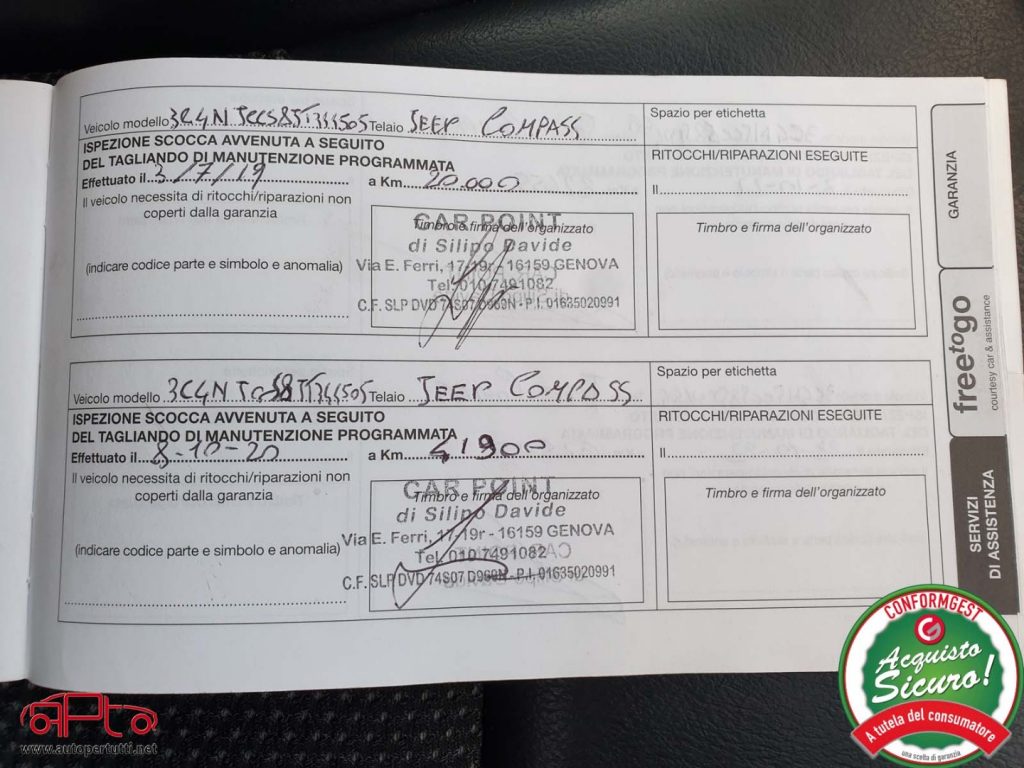 Veicolo modello Telaio JEEP COMPASS
ISPEZIONE SCOCCA AVVENUTA A SEGUITO
DEL TAGLIANDO DI MANUTENZIONE PROGRAMMATA
Effettuato il 3/7/19 a Km 20.000
Il veicolo necessita di ritocchi/riparazioni non
coperti dalla garanzia
(indicare codice parte e simbolo e anomalia)
CAR POINT
Timbro e firma dell'organizzato
di Silipo Davide
Via E. Ferri, 17-19r - 16159 GENOVA
Tel. 010 7491082
C.F. SLP DVD 74S07 D969N - P.I. 01635020991
Spazio per etichetta
RITOCCHI/RIPARAZIONI ESEGUITE
Il
Timbro e firma dell'organizzato
Veicolo modello Telaio JEEP COMPASS
ISPEZIONE SCOCCA AVVENUTA A SEGUITO
DEL TAGLIANDO DI MANUTENZIONE PROGRAMMATA
Effettuato il 8-10-20 a Km 41900
Il veicolo necessita di ritocchi/riparazioni non
coperti dalla garanzia
(indicare codice parte e simbolo e anomalia)
CAR POINT
Timbro e firma dell'organizzato
di Silipo Davide
Via E. Ferri, 17-19r - 16159 GENOVA
Tel. 010 7491082
C.F. SLP DVD 74S07 D969N - P.I. 01635020991
Spazio per etichetta
RITOCCHI/RIPARAZIONI ESEGUITE
Il
Timbro e firma dell'organizzato
GARANZIA
freetogo
courtesy car & assistance
SERVIZI
DI ASSISTENZA
CONFORMGEST
Acquisto
Sicuro!
A tutela del consumatore
una scelta di garanzia
apto
www.autopertutti.net